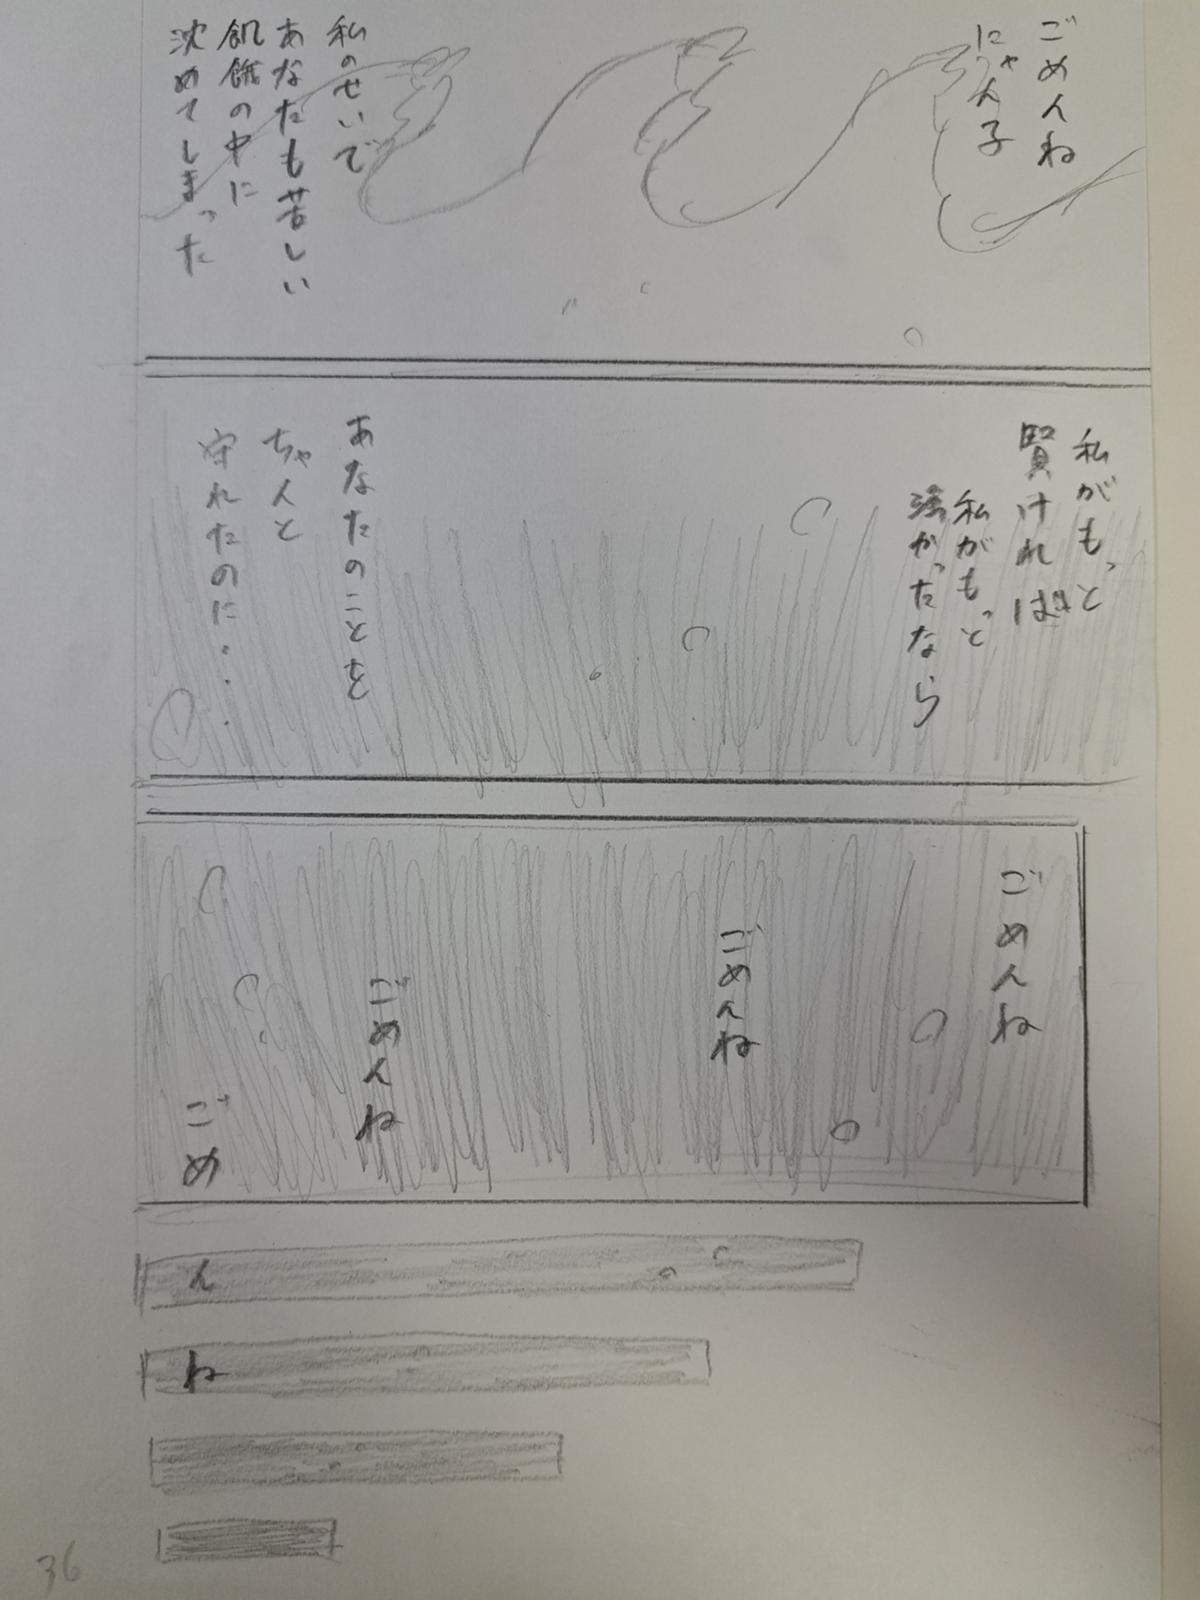 ごめんね
にゃん子
私のせいで
あなたも苦しい
飢餓の中に
沈めてしまった
私がもっと
賢ければ
私がもっと
強かったなら
あなたのことを
ちゃんと
守れたのに・・・
ごめんね
ごめんね
ごめんね
ごめ
ん
ね
36